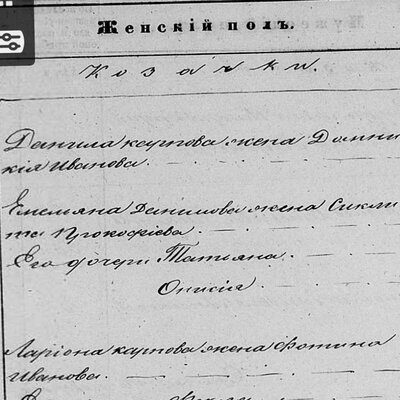 Женскій полъ.
Козачки.
Данила карпова жена Домни
кія Иванова.
Емельяна Данилова жена
та Прокофіева.
Его дочери Татіяна.
Онисія.
Ларіона карпова жена Фотина
Иванова.